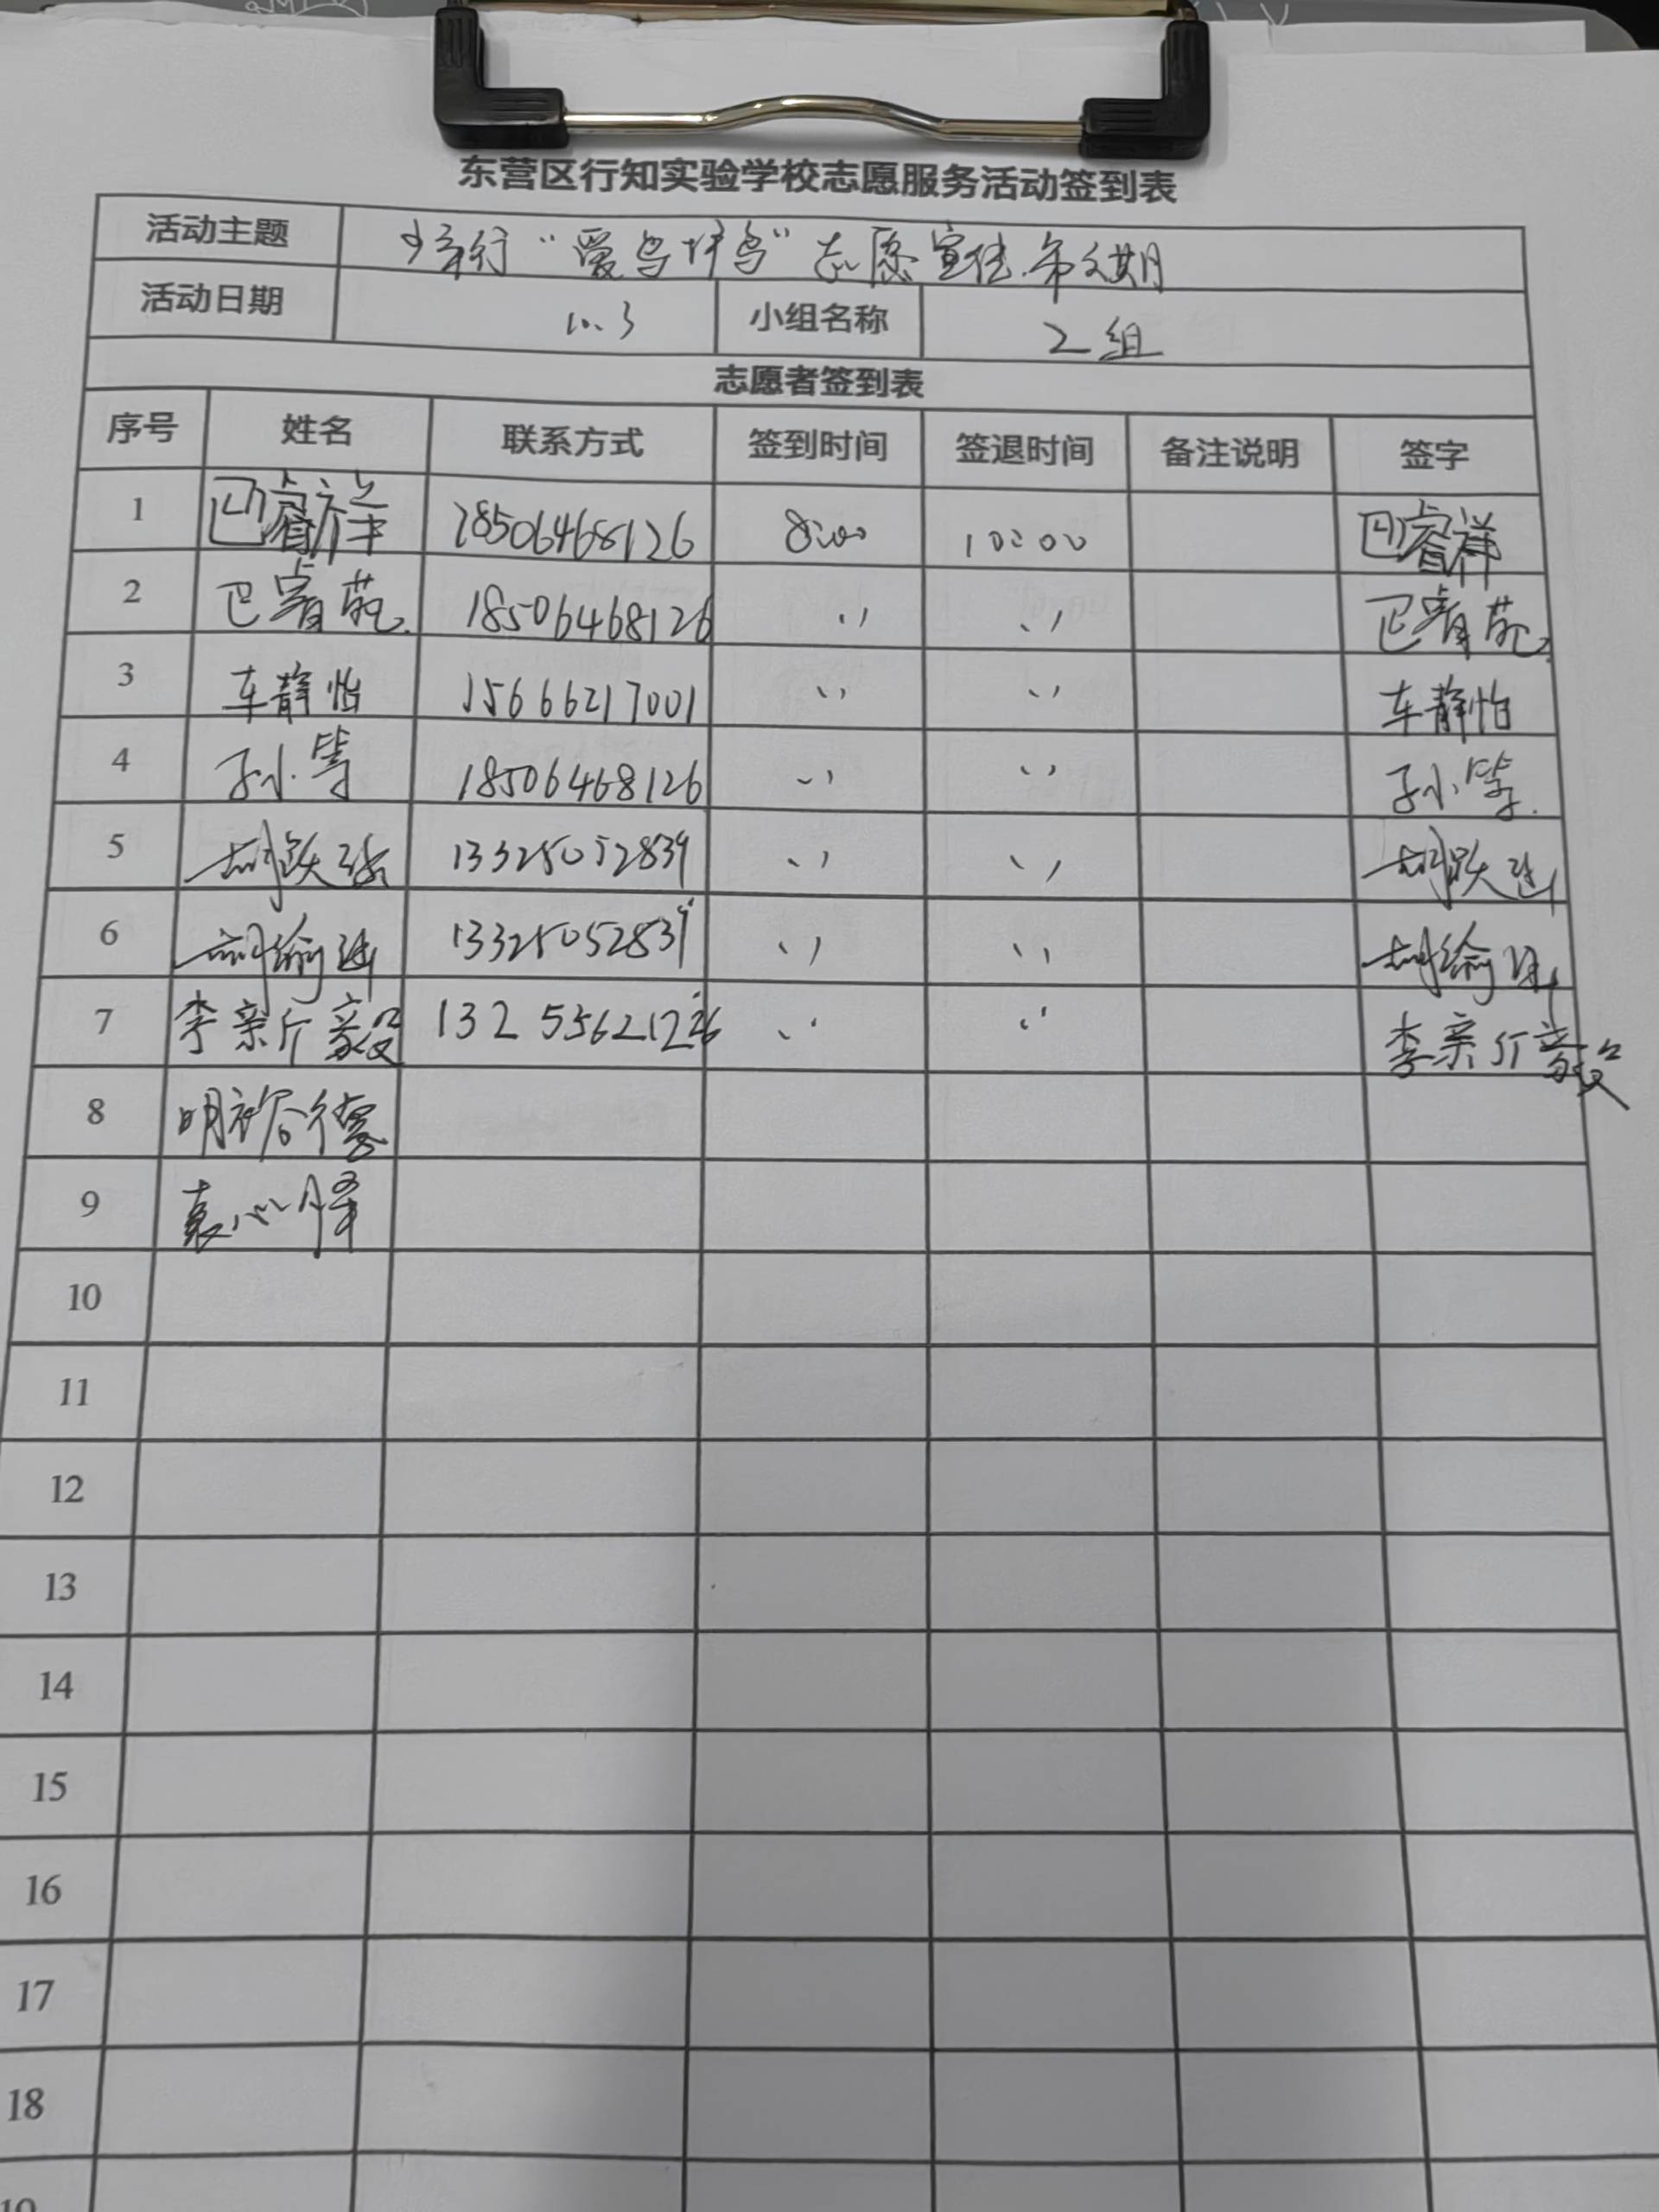 东营区行知实验学校志愿服务活动签到表
活动主题 行“爱鸟护鸟”志愿宣传 期
活动日期 10.3 小组名称 2组
志愿者签到表
序号 姓名 联系方式 签到时间 签退时间 备注说明 签字
1 巴睿祥 18506468126 8:00 10:00 巴睿祥
2 巴睿苑 18506468126 〃 〃 巴睿苑
3 车静怡 15666217001 〃 〃 车静怡
4 孙小 18506468126 〃 〃 孙小
5 胡跃 13325052839 〃 〃 胡跃
6 胡 13325052839 〃 〃 胡
7 李亲 毅 13255621226 〃 〃 李亲 毅
8 明
9 袁心
10
11
12
13
14
15
16
17
18
19